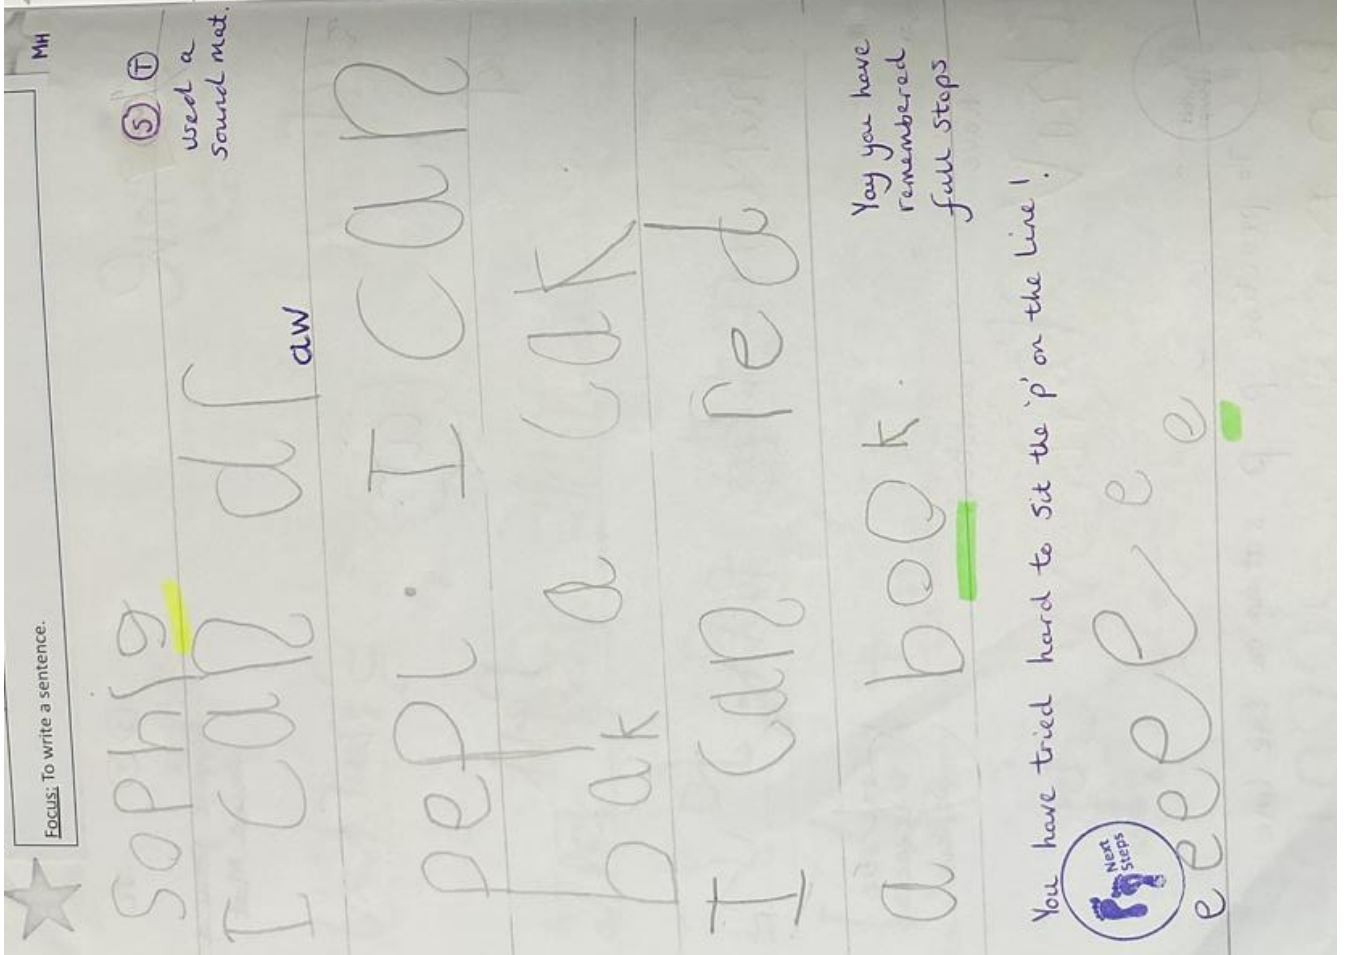 MH
Focus: To write a sentence.
S T
used a
sound mat.
Sophie
I can dr
aw
pepl. I can
bak a cak
I can red
a book.
Yay you have
remembered
full stops
You have tried hard to sit the 'p' on the line!
Next
Steps
e e e e e e e